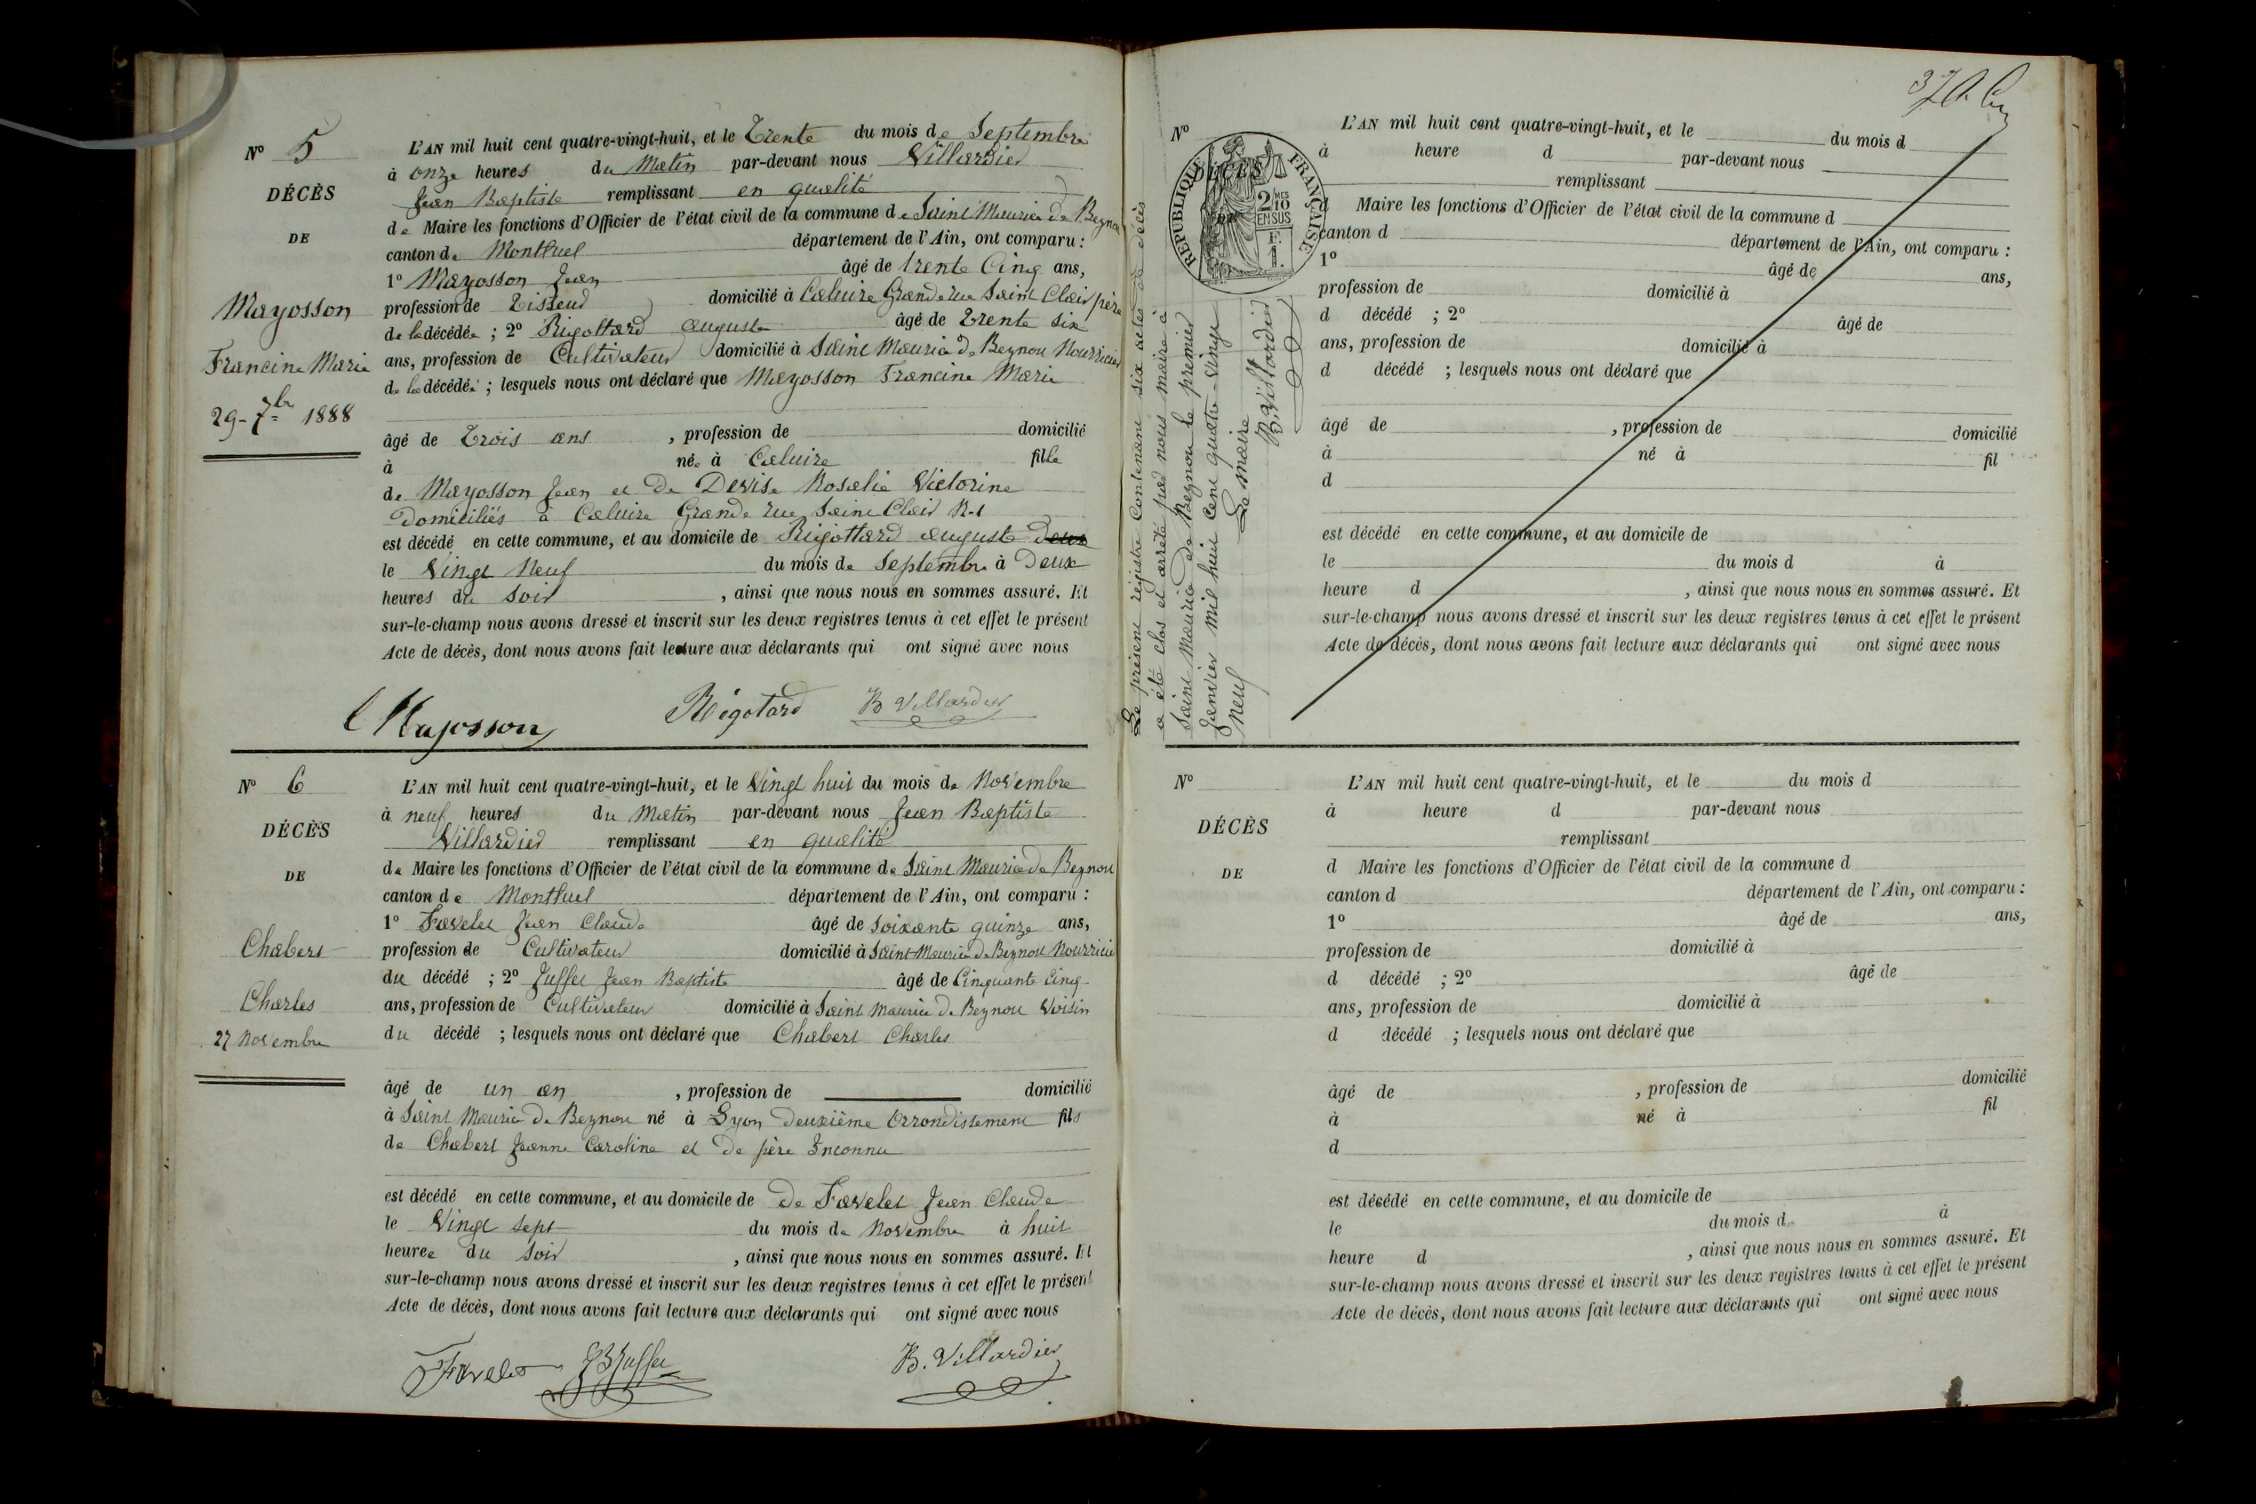 N° 5
DÉCÈS
DE
Mayosson
Francine Marie
29 - 7bre 1888
L'AN mil huit cent quatre-vingt-huit, et le Trente du mois de Septembre
à onze heures du Matin par-devant nous Villardier
Jean Baptiste remplissant en qualité
de Maire les fonctions d'Officier de l'état civil de la commune de Saint Maurice de Beynou
canton de Montluel département de l'Ain, ont comparu :
1° Mayosson Jean âgé de trente Cinq ans,
profession de Tisseur domicilié à Caluire Grande rue Saint Clair père
de la décédée ; 2° Rigottard auguste âgé de Trente six
ans, profession de Cultivateur domicilié à Saint Maurice de Beynou Nourricier
de la décédée ; lesquels nous ont déclaré que Mayosson Francine Marie
âgé de Trois ans , profession de domicilié
à née à Caluire fille
de Mayosson Jean et de Devise Rosalie Victorine
Domiciliés à Caluire Grande rue Saint Clair
est décédé en cette commune, et au domicile de Rigottard auguste deux
le Vingt Neuf du mois de Septembre à Deux
heures du Soir , ainsi que nous nous en sommes assuré. Et
sur-le-champ nous avons dressé et inscrit sur les deux registres tenus à cet effet le présent
Acte de décès, dont nous avons fait lecture aux déclarants qui ont signé avec nous
Mayosson Régotard B Villardier
N° 6
DÉCÈS
DE
Chabert
Charles
27 Novembre
L'AN mil huit cent quatre-vingt-huit, et le Vingt huit du mois de Novembre
à neuf heures du Matin par-devant nous Jean Baptiste
Villardier remplissant en qualité
de Maire les fonctions d'Officier de l'état civil de la commune de Saint Maurice de Beynou
canton de Montluel département de l'Ain, ont comparu :
1° Favelet Jean Claude âgé de Soixante quinze ans,
profession de Cultivateur domicilié à Saint Maurice de Beynou Nourricier
du décédé ; 2° Juffet Jean Baptiste âgé de Cinquante Cinq
ans, profession de Cultivateur domicilié à Saint Maurice de Beynou Voisin
du décédé ; lesquels nous ont déclaré que Chabert Charles
âgé de un an , profession de domicilié
à Saint Maurice de Beynou né à Lyon Deuxième Arrondissement fils
de Chabert Jeanne Caroline et De père Inconnu
est décédé en cette commune, et au domicile de De Favelet Jean Claude
le Vingt sept du mois de Novembre à huit
heures du Soir , ainsi que nous nous en sommes assuré. Et
sur-le-champ nous avons dressé et inscrit sur les deux registres tenus à cet effet le présent
Acte de décès, dont nous avons fait lecture aux déclarants qui ont signé avec nous
Favelet JB Juffet B. Villardier
Le présent registre contenant six actes de décès
a été clos et arrêté par nous maire à
Saint Maurice de Beynou le premier
Janvier mil huit cent quatre-vingt
neuf
Le maire
B. Villardier
N°
DÉCÈS
RÉPUBLIQUE FRANÇAISE
2/10 MES
EN SUS
F.
1.
L'AN mil huit cent quatre-vingt-huit, et le du mois d
à heure d par-devant nous
remplissant
d Maire les fonctions d'Officier de l'état civil de la commune d
canton d département de l'Ain, ont comparu :
1° âgé de ans,
profession de domicilié à
d décédé ; 2° âgé de
ans, profession de domicilié à
d décédé ; lesquels nous ont déclaré que
âgé de , profession de domicilié
à né à fil
d
est décédé en cette commune, et au domicile de
le du mois d à
heure d , ainsi que nous nous en sommes assuré. Et
sur-le-champ nous avons dressé et inscrit sur les deux registres tenus à cet effet le présent
Acte de décès, dont nous avons fait lecture aux déclarants qui ont signé avec nous
N°
DÉCÈS
DE
L'AN mil huit cent quatre-vingt-huit, et le du mois d
à heure d par-devant nous
remplissant
d Maire les fonctions d'Officier de l'état civil de la commune d
canton d département de l'Ain, ont comparu :
1° âgé de ans,
profession de domicilié à
d décédé ; 2° âgé de
ans, profession de domicilié à
d décédé ; lesquels nous ont déclaré que
âgé de , profession de domicilié
à né à fil
d
est décédé en cette commune, et au domicile de
le du mois d à
heure d , ainsi que nous nous en sommes assuré. Et
sur-le-champ nous avons dressé et inscrit sur les deux registres tenus à cet effet le présent
Acte de décès, dont nous avons fait lecture aux déclarants qui ont signé avec nous